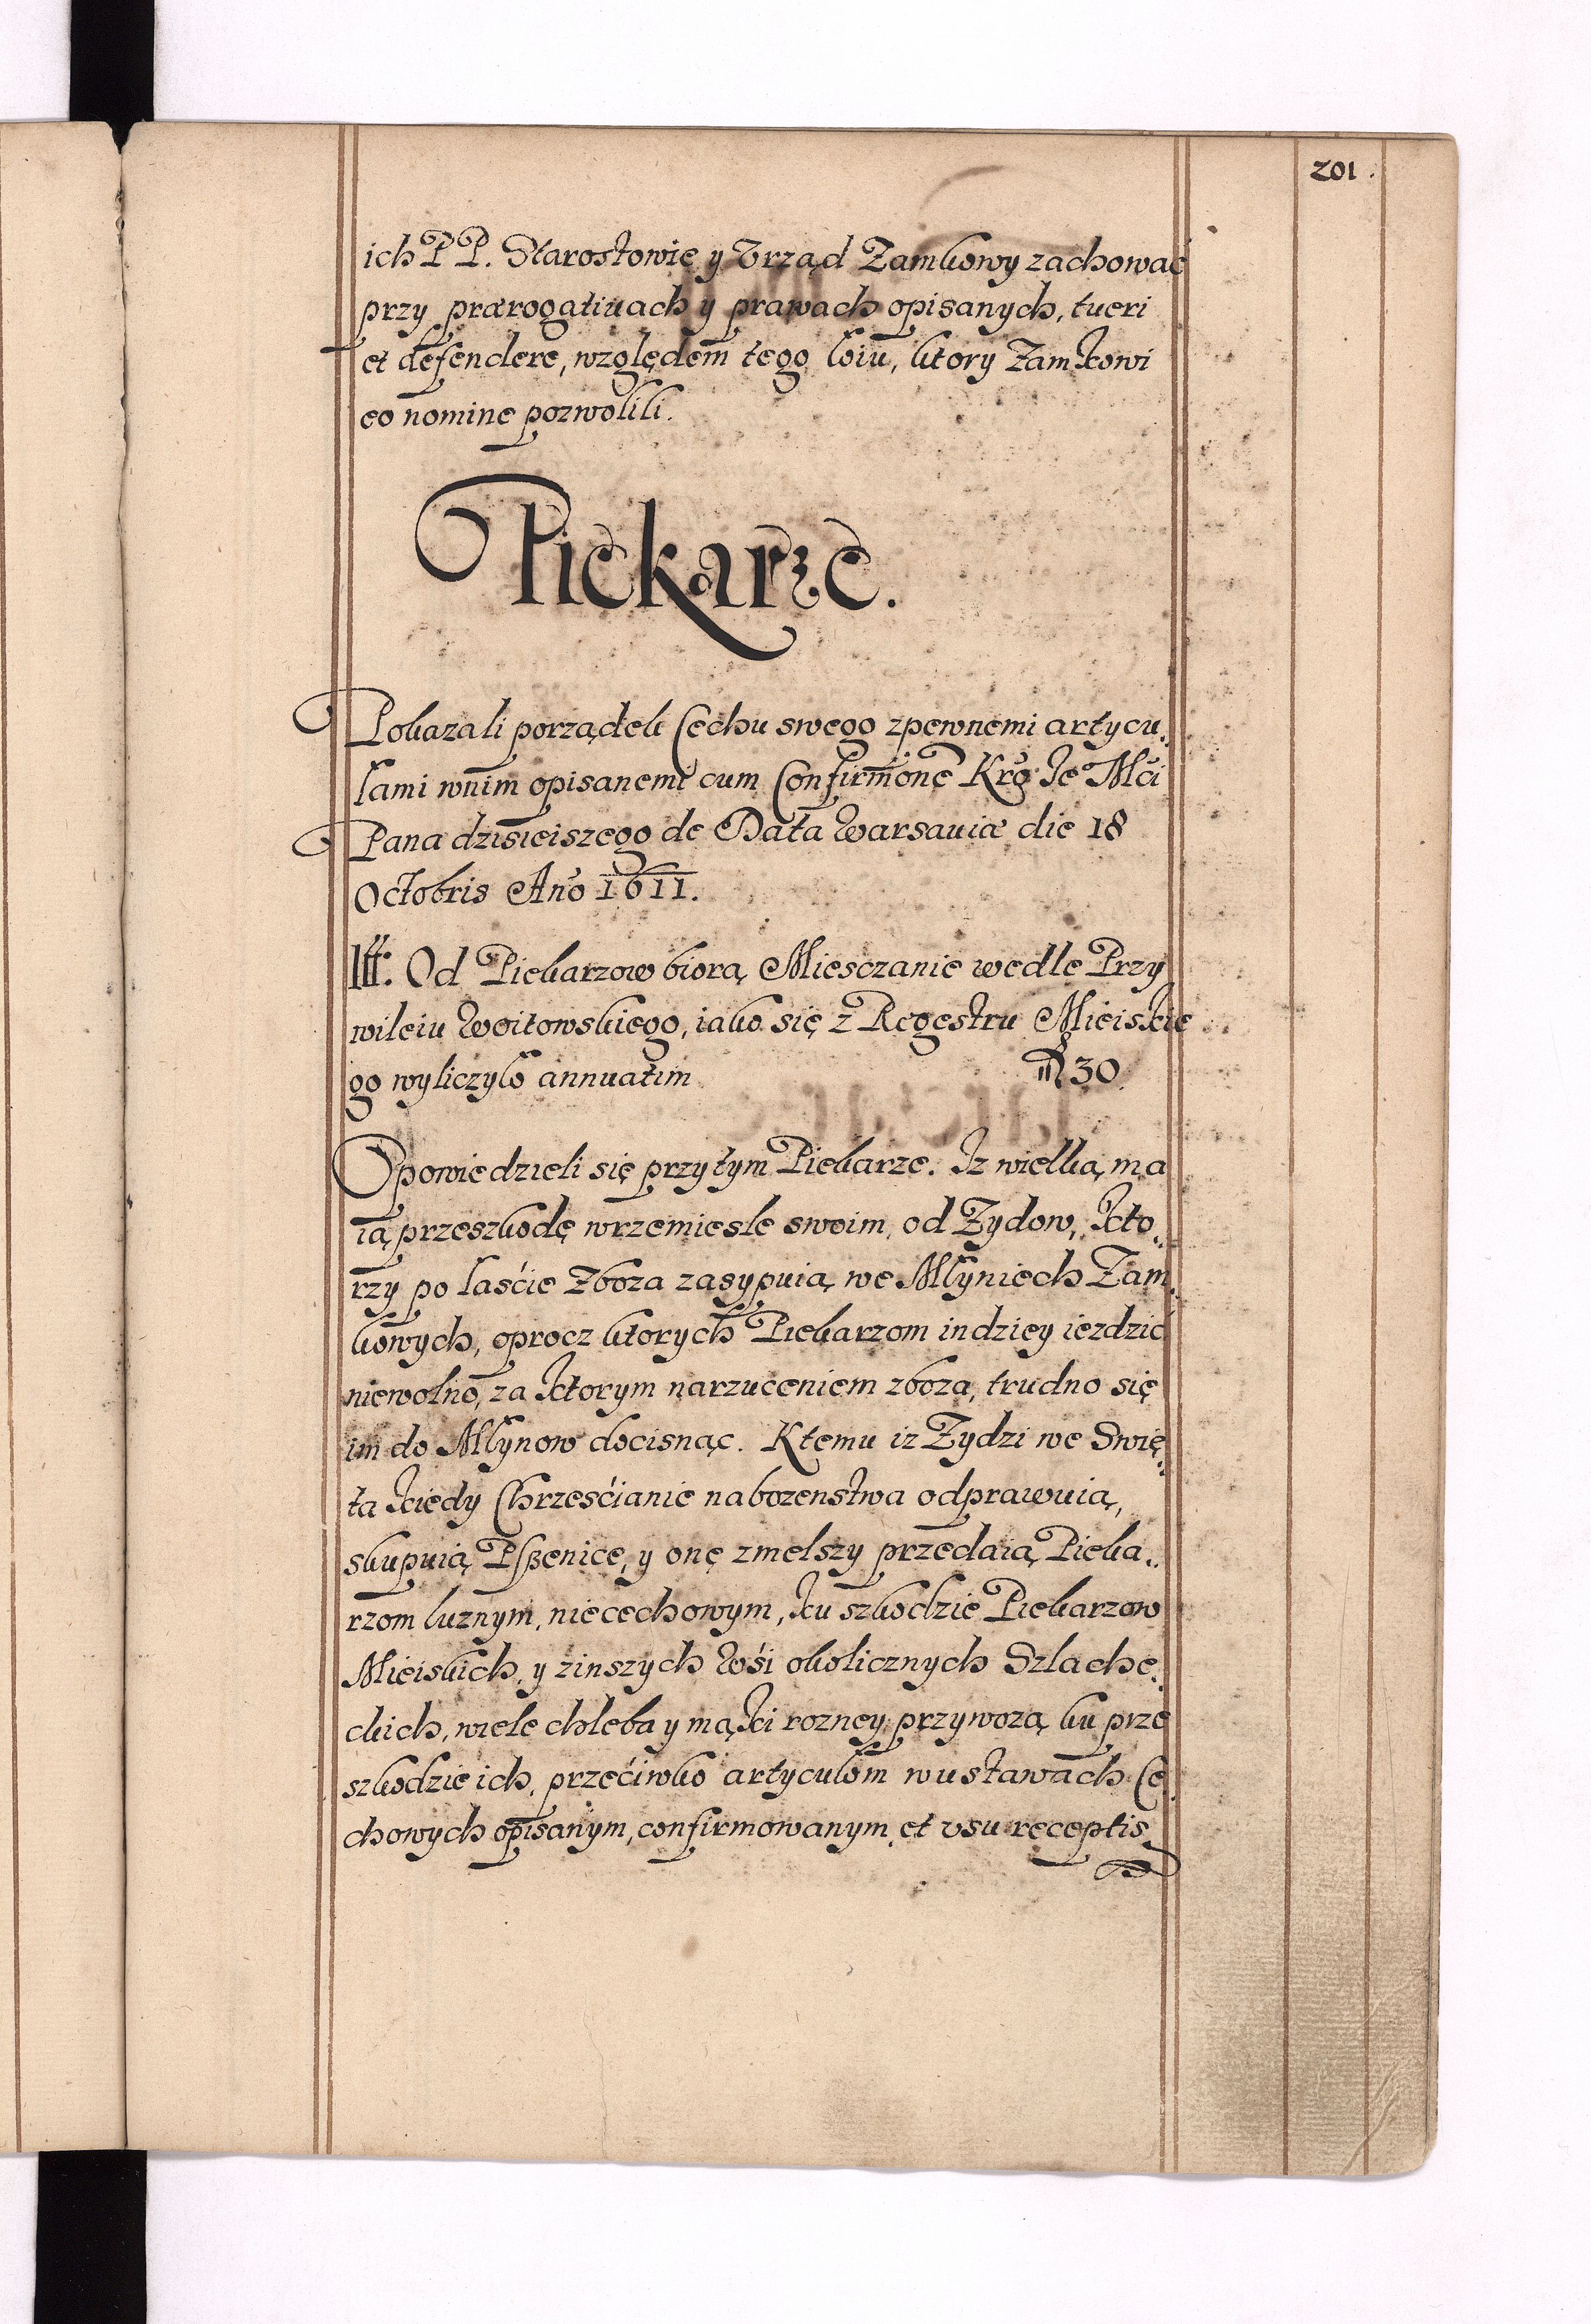 201.
ich PP. Starostowie y Vrząd Zamkowy zachować
przy prærogatiuach y prawach opisanych, tueri
et defendere, względem tego łoiu, ktory Zamkowi
eo nomine pozwolili.
Piekarze.
Pokazali porządek Cechu swego zpewnemi artycu.
łami wnim opisanemi cum Confirm̄one Kro Je Mći
Pana dzisieiszego de Data Warsauiæ die 18
Octobris Ano 1611.
Od Piekarzow biorą Miesczanie wedle Przy
wileiu Woitowskiego, iako się z Regestru Mieiskie
go wyliczyło annuatim 30
Opowiedzieli się przytym Piekarze. Iz wielką ma
ią przeszkodę wrzemiesle swoim, od Zydow, kto..
rzy po łaście Zboza zasypuią we Młyniech Zam.
kowych, oprocz ktorych Piekarzom indziey iezdzic
niewolno, za ktorym narzuceniem zboza, trudno się
im do Młynow docisnąc. Ktemu iz Zydzi we Swię..
ta kiedy Chrześćianie nabozenstwa odprawuią,
skupuią Pszenice, y onę zmelszy przedaią Pieka..
rzom luznym, niecechowym, ku szkodzie Piekarzow
Mieiskich, y zinszych Wśi okolicznych Szlache..
ckich, wiele chleba y mąki rozney przywozą ku prze
szkodzie ich, przećiwko artycułom wustawach Ce.
chowych opisanym, confirmowanym et vsu receptis